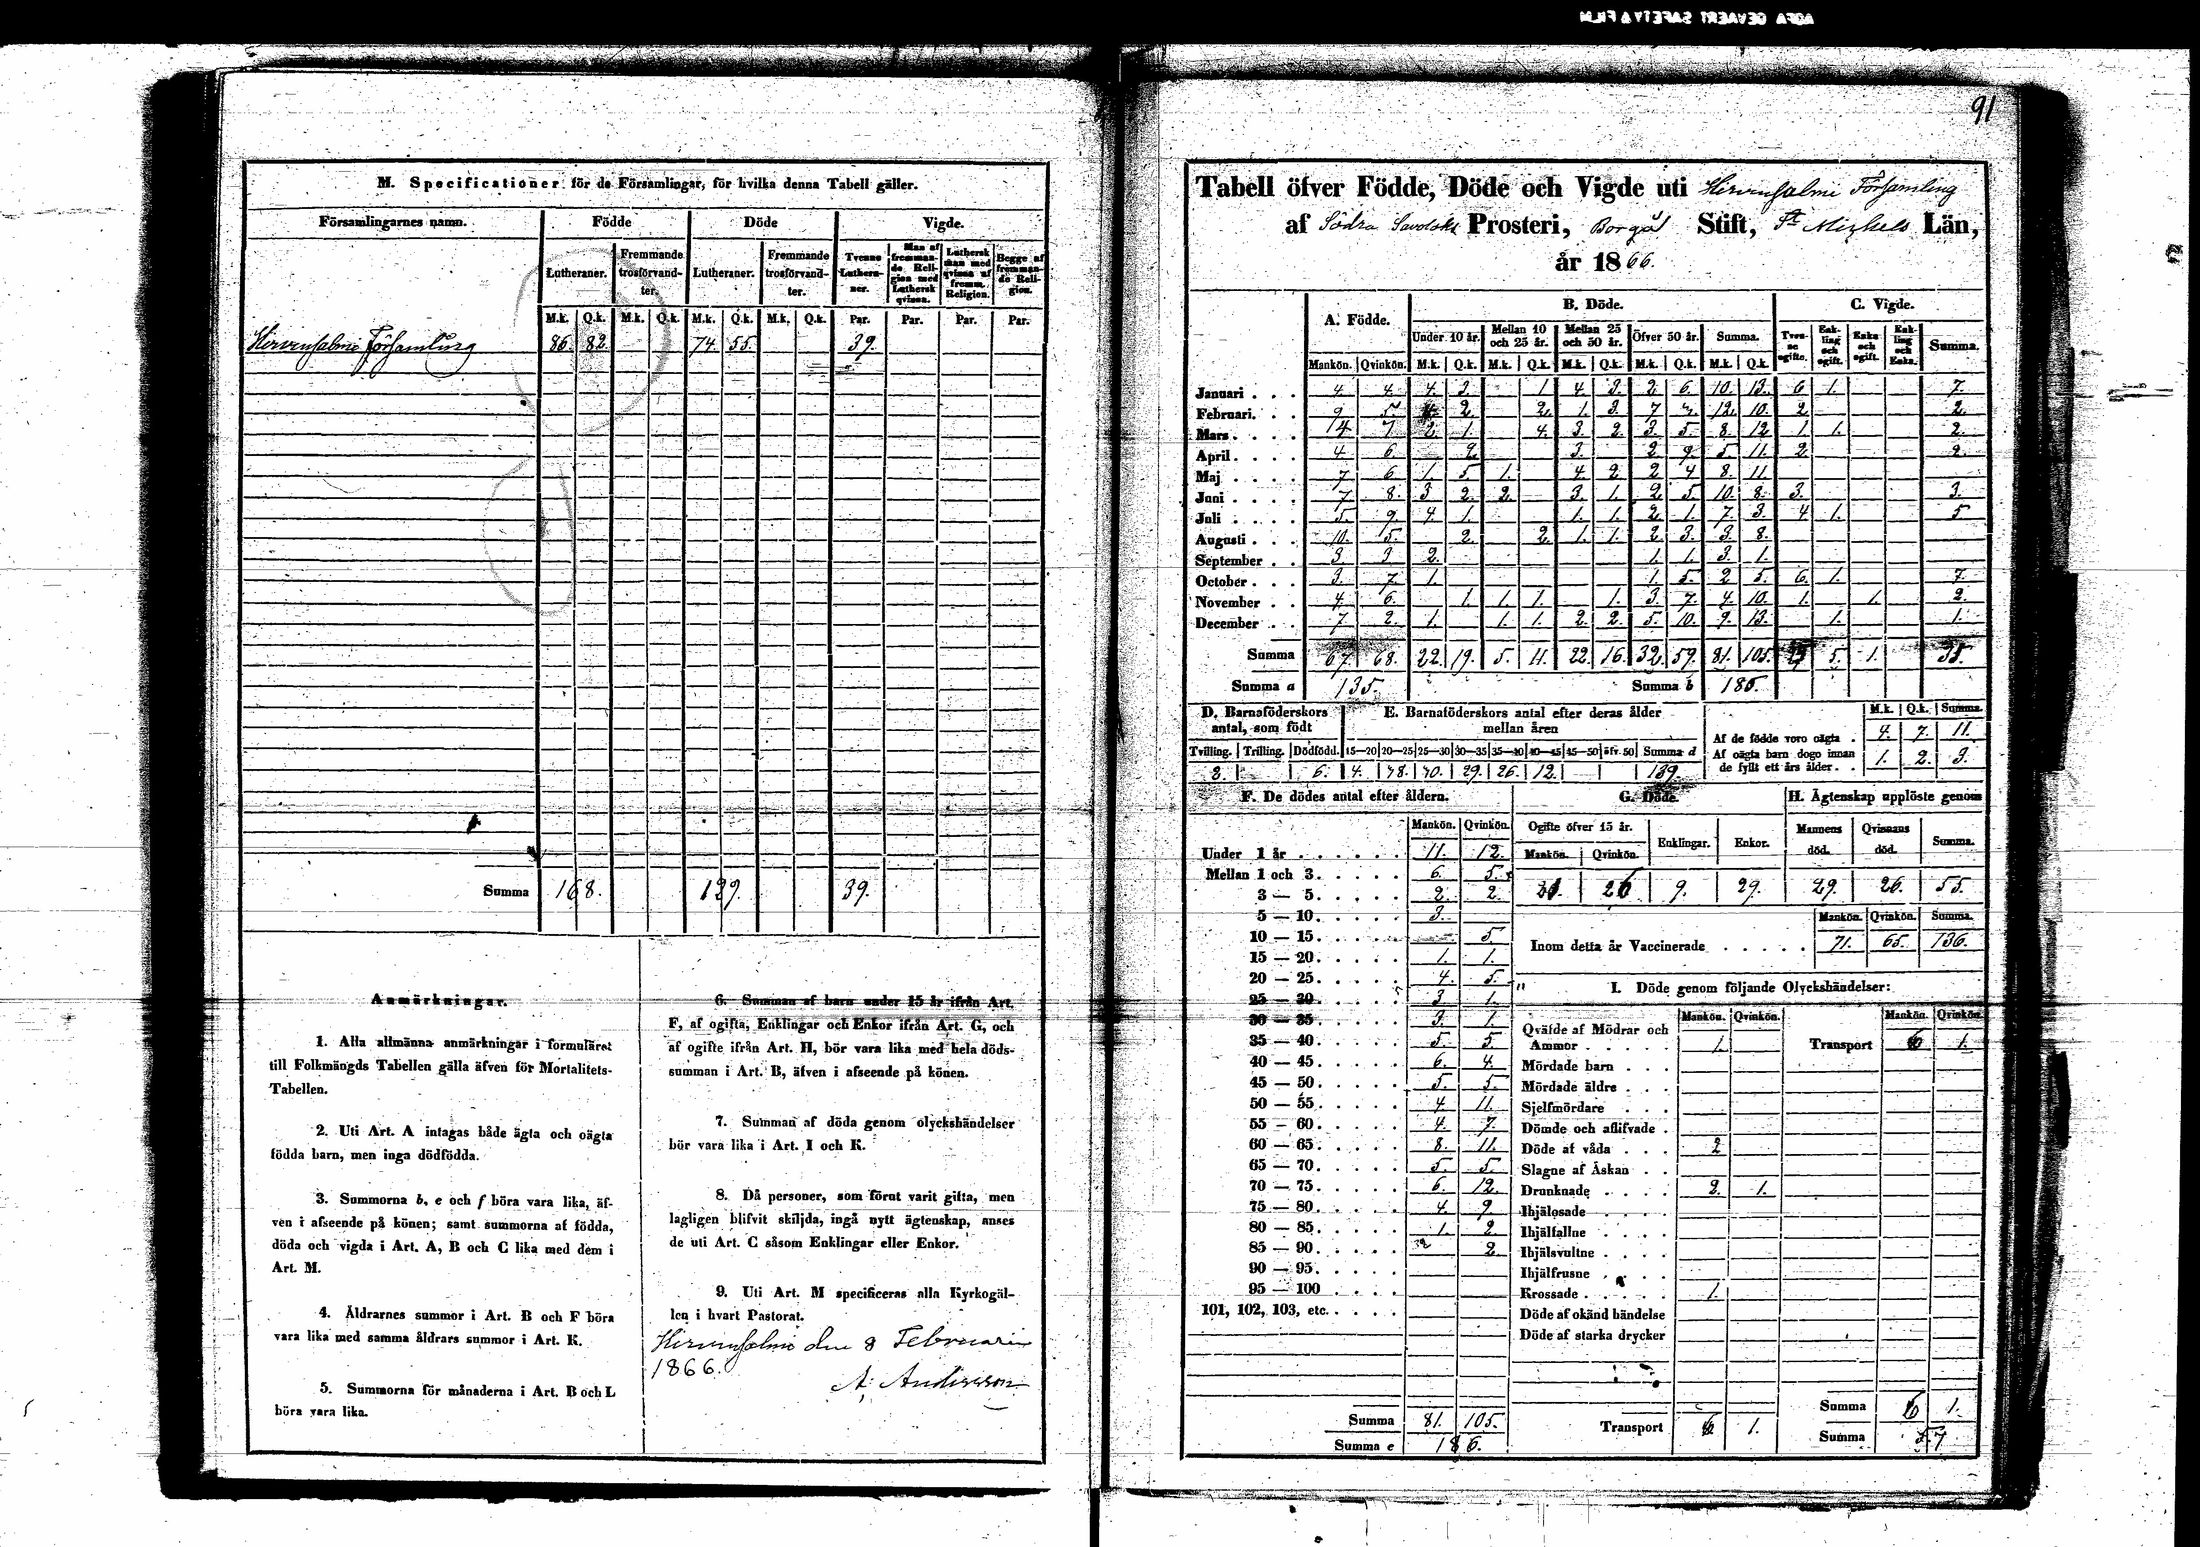 AGFA GEVAERT SAFETY FILM
M. Specificationer för de Församlingar, för hvilka denna Tabell gäller.
Församlingarnes namn. Födde Döde Vigde.
Lutheraner. Fremmande trosförvandter. Lutheraner. Fremmande trosförvandter. Tvenne Lutheraner. Man af fremmande Religion med Luthersk qvinna. Luthersk man med qvinna af fremm. Religion. Begge af fremmande Religion.
M.k. Q.k. M.k. Q.k. M.k. Q.k. M.k. Q.k. Par. Par. Par. Par.
Hirvensalmi Församling 86. 82. 74. 55. 39.
Summa 168. 129. 39.
Anmärkningar.
1. Alla allmänna anmärkningar i formuläret
till Folkmängds Tabellen gälla äfven för Mortalitets-
Tabellen.
2. Uti Art. A intagas både ägta och oägta
födda barn, men inga dödfödda.
3. Summorna b, e och f böra vara lika, äf-
ven i afseende på könen; samt summorna af födda,
döda och vigda i Art. A, B och C lika med dem i
Art. M.
4. Åldrarnes summor i Art. B och F böra
vara lika med samma åldrars summor i Art. K.
5. Summorna för månaderna i Art. B och L
böra vara lika.
6. Summan af barn under 15 år ifrån Art.
F, af ogifta, Enklingar och Enkor ifrån Art. G, och
af ogifte ifrån Art. H, bör vara lika med hela döds-
summan i Art. B, äfven i afseende på könen.
7. Summan af döda genom olyckshändelser
bör vara lika i Art. I och K.
8. Då personer, som förut varit gifta, men
lagligen blifvit skiljda, ingå nytt ägtenskap, anses
de uti Art. C såsom Enklingar eller Enkor.
9. Uti Art. M specificeras alla Kyrkogäl-
len i hvart Pastorat.
Hirvensalmi den 8 Februari
1866.
A. Andersson
91
Tabell öfver Födde, Döde och Vigde uti Hirvensalmi Församling
af Södra Savolaks Prosteri, Borgå Stift, St Michels Län,
år 1866.
A. Födde. B. Döde. C. Vigde.
Under 10 år. Mellan 10 och 25 år. Mellan 25 och 50 år. Öfver 50 år. Summa. Tvenne ogifte. Enkling och ogift. Enka och ogift. Enkling och Enka. Summa.
Mankön. Qvinkön. M.k. Q.k. M.k. Q.k. M.k. Q.k. M.k. Q.k. M.k. Q.k.
Januari 4. 4. 4. 3. 1. 4. 3. 2. 6. 10. 13. 6. 1. 7.
Februari. 9. 5. 2. 2. 1. 3. 7. 12. 10. 2. 2.
Mars 14 7 2. 1. 4. 3. 2. 3. 5. 8. 12 1. 1. 2.
April 4. 6. 2. 3. 2 9. 5. 11. 2. 2.
Maj 7. 6 1. 5. 1. 4. 2. 2 4 8. 11.
Juni 7. 8. 3 2. 2. 3. 1. 2. 5. 10. 8. 3. 3.
Juli 5. 9. 4. 1. 1. 1. 2. 1. 7. 3. 4 1. 5
Augusti 10. 5. 2. 2. 1. 1. 2. 3. 3. 8.
September 3 3 2. 1. 1. 3. 1.
October 3. 7. 1. 1. 5. 2 5. 6. 1. 7.
November 4. 6. 1. 1. 1. 1. 3. 7. 4. 10. 1. 1. 2.
December 7 2. 1. 1. 1. 2. 2. 5. 10. 9. 13. 1. 1.
Summa 67. 68. 22. 19. 5. 11. 22. 16. 32. 59. 81. 105. 5. 1.
Summa a 135. Summa b 186.
D. Barnaföderskors antal, som född E. Barnaföderskors antal efter deras ålder mellan åren
M.k. Q.k. Summa.
Af de födde voro oägta 4. 7. 11.
Af oägta barn dogo innan de fyllt ett års ålder 1. 2. 3.
Tvilling. Trilling. Dödfödd. 15—20 20—25 25—30 30—35 35—40 40—45 45—50 öfv. 50 Summa d
2. 6. 4. 29. 26. 12. 139.
F. De dödes antal efter åldern. G. Döde. H. Ägtenskap upplöste genom
Mankön. Qvinkön. Ogifte öfver 15 år. Enklingar. Enkor. Mannens död. Qvinnans död. Summa.
Mankön. Qvinkön.
26 9. 29. 29. 26. 55.
Under 1 år 11. 12.
Mellan 1 och 3 6. 5.
3 — 5 2. 2.
5 — 10 3.
10 — 15 5.
15 — 20 1. 1.
20 — 25 4. 5.
25 — 30 3 1.
30 — 35 3. 1.
35 — 40 5. 5.
40 — 45 6. 4.
45 — 50 5. 5.
50 — 55 4 11.
55 — 60 4. 7.
60 — 65 8. 11.
65 — 70 5. 5.
70 — 75 6. 12.
75 — 80 4. 9.
80 — 85 1. 2.
85 — 90 2.
90 — 95
95 — 100
101, 102, 103, etc.
Summa 81. 105.
Summa e 186.
Mankön. Qvinkön. Summa.
Inom detta år Vaccinerade 71. 65. 136.
I. Döde genom följande Olyckshändelser:
Mankön. Qvinkön. Mankön. Qvinkön.
Qväfde af Mödrar och Ammor 1. Transport 6 1.
Mördade barn
Mördade äldre
Sjelfmördare
Dömde och aflifvade
Döde af våda 2
Slagne af Åskan
Drunknade 2. 1.
Ihjälosade
Ihjälfallne
Ihjälsvultne
Ihjälfrusne
Krossade 1.
Döde af okänd händelse
Döde af starka drycker
Summa 6 1.
Transport 6 1.
Summa 7